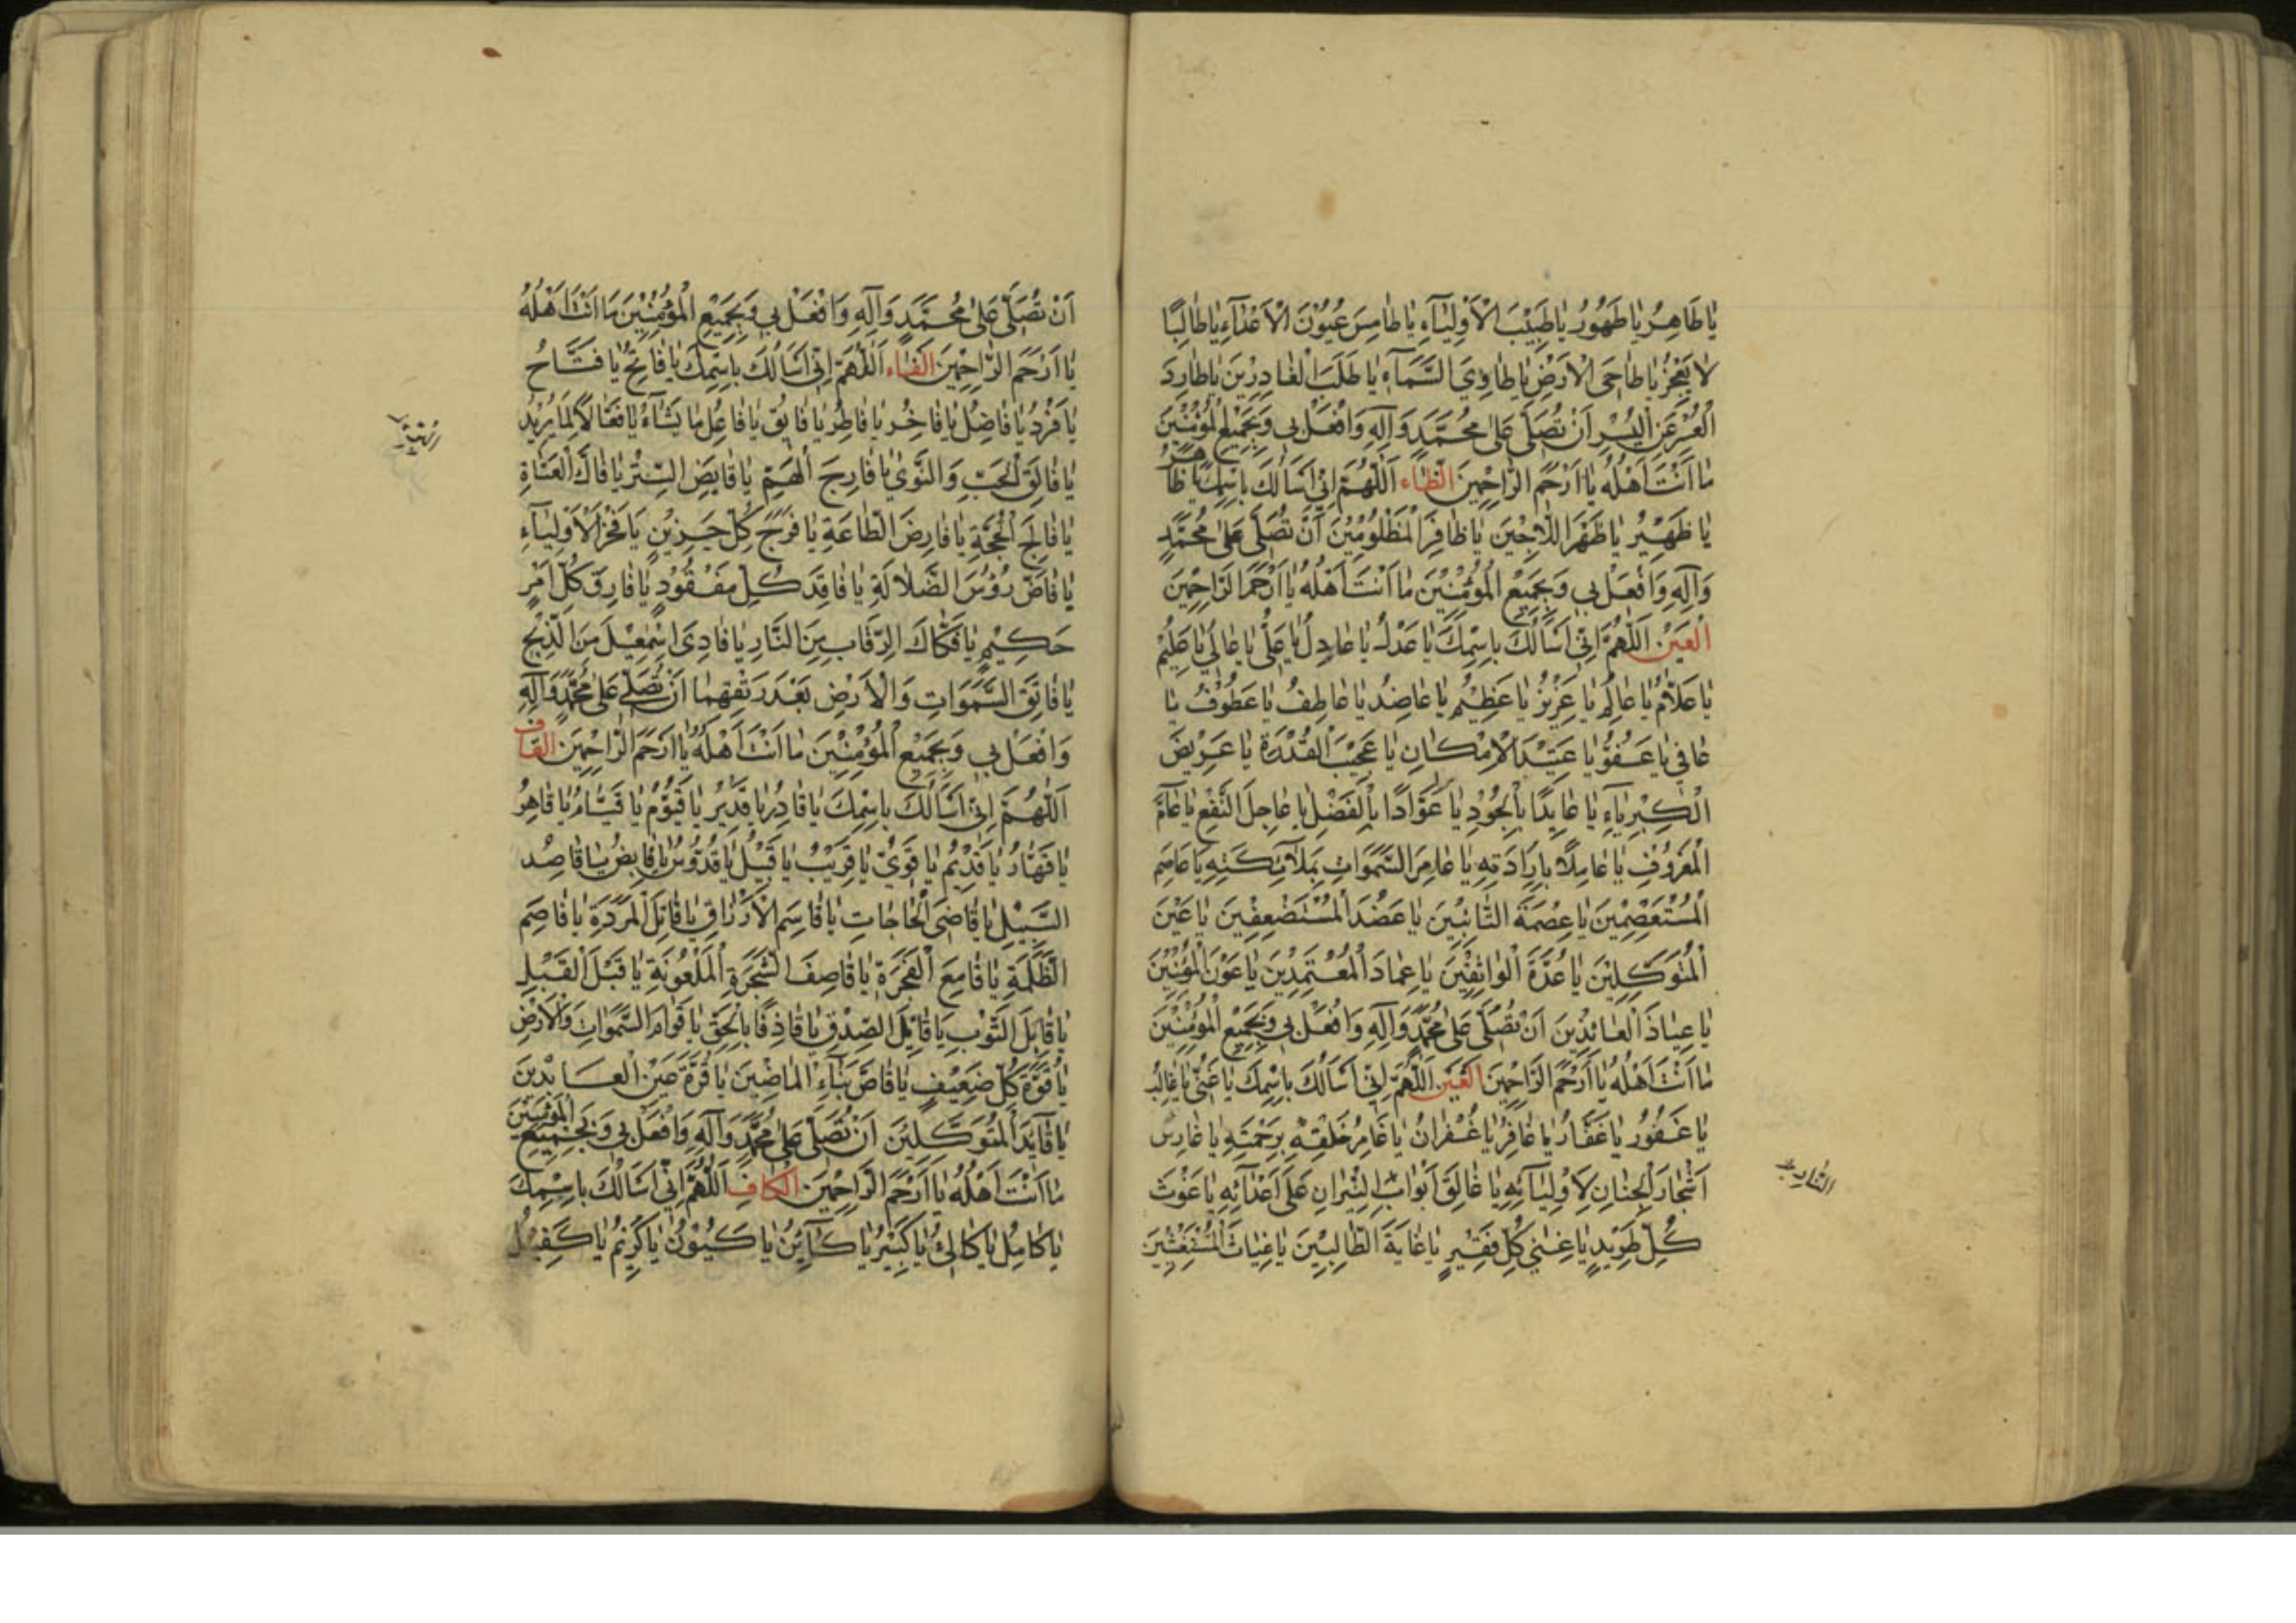 يٰا طٰاهِرُ يٰا طَهُورُ يٰا طَبيْبَ الْأَوْلِيٰآءِ يٰا طٰامِسَ عُيُوْنَ الْأَعْدٰآءِ يٰا طٰالِبًا
لٰا يَعْجِزُ يٰا طٰاحِىَ الْأَرْضِ يٰا طٰاوِىَ السَّمَآءِ يٰا طَلَبَ الْغٰادِرِيْنَ يٰا طٰارِدَ
الْعُسْرِ عَنِ الْيُسْرِ اَنْ تُصَلِّىَ عَلىٰ مُحَمَّدٍ وَآلِهِ وَافْعَلْ بي وَبِجَمِيْعِ الْمُؤْمِنْينَ
مٰا اَنْتَ اَهْلُهُ يٰا اَرْحَمَ الرّٰاحِمْينَ الظّٰاء اَللّٰهُمَّ اِنّي اَسْاَلُكَ بِاسْمِكَ يٰا ظٰاهِرُ
يٰا ظَهيْرُ يٰا ظَهْرَ اللّٰاجِيْنَ يٰا ظٰافِرَ الْمَظْلُومْيْنَ اَنْ تُصَلِّىَ عَلىٰ مُحَمَّدٍ
وَآلِهِ وَافْعَلْ بي وَبِجَمِيْعِ الْمُؤْمِنْيْنَ مٰا اَنْتَ اَهْلُهُ يٰا اَرْحَمَ الرّٰاحِمْينَ
الْعَيْن اَللّٰهُمَّ اِنّي اَسْاَلُكَ بِاسْمِكَ يٰا عَدْلُ يٰا عٰادِلُ يٰا عَلِيُّ يٰا عٰالي يٰا عَلِيْمُ
يٰا عَلّٰامُ يٰا عٰالِمُ يٰا عَزيْزُ يٰا عَظِيْمُ يٰا عٰاضِدُ يٰا عٰاطِفُ يٰا عَطُوْفُ يٰا
عٰافي يٰا عَفُوُّ يٰا عَتيْدَ الْاِمْكٰانِ يٰا عَجيْبَ الْقُدْرَةِ يٰا عَريْضَ
الْكِبْرِيٰآءِ يٰا عٰايِدًا بِالْجُوْدِ يٰا عَوّٰادًا بِالْفَضْلِ يٰا عٰاجِلَ النَّفْعِ يٰا عٰآمَّ
الْمَعْرُوْفِ يٰا عٰامِلًا بِاِرٰادَتِهِ يٰا عٰامِرَ السَّمٰوَاتِ بِمَلٰآئِكَتِهِ يٰا عٰاصِمَ
الْمُسْتَعْصِمْينَ يٰا عِصْمَةَ التّٰائِبيْنَ يٰا عَضُدَ الْمُسْتَضْعِفيْنَ يٰا عَيْنَ
الْمُتَوَكِّلِيْنَ يٰا عُدَّةَ الْوٰاثِقِيْنَ يٰا عِمٰادَ الْمُعْتَمِدِيْنَ يٰا عَوْنَ الْمُؤْمِنْيْنَ
يٰا عِيٰاذَ الْعٰائِذِيْنَ اَنْ تُصَلِّىَ عَلىٰ مُحَمَّدٍ وَآلِهِ وَافْعَلْ بي وَبِجَمِيْعِ الْمُؤْمِنيْنَ
مٰا اَنْتَ اَهْلُهُ يٰا اَرْحَمَ الرّٰاحِمْينَ الغَيْن اَللّٰهُمَّ اِنّي اَسْاَلُكَ بِاسْمِكَ يٰا غَنيُّ يٰا غٰالِبُ
يٰا غَفُوْرُ يٰا غَفّٰارُ يٰا غٰافِرُ يٰا غُفْرٰانُ يٰا غٰامِرُ خَلْقِهِ بِرَحْمَتِهِ يٰا غٰارِسَ
اَشْجٰارَ الْجِنٰانِ لِأَوْلِيٰآئِهِ يٰا غٰالِقَ اَبْوٰابَ النّيْرٰانِ عَلىٰ اَعْدٰآئِهِ يٰا غَوْثَ
كُلِّ طَريْدٍ يٰا غِنيٰ كُلِّ فَقيْرٍ يٰا غٰايَةَ الطّٰالِبيْنَ يٰا غِيٰاثَ الْمُسْتَغيْثيْنَ
اَنْ تُصَلِّىَ عَلىٰ مُحَمَّدٍ وَآلِهِ وَافْعَلْ بي وَبِجَمِيْعِ الْمُؤْمِنْيْنَ مٰا اَنْتَ اَهْلُهُ
يٰا اَرْحَمَ الرّٰاحِمْينَ الفٰاء اَللّٰهُمَّ اِنّي اَسْاَلُكَ بِاسْمِكَ يٰا فٰاتِحُ يٰا فَتّٰاحُ
يٰا فَرْدُ يٰا فٰاضِلُ يٰا فٰاخِرُ يٰا فٰاطِرُ يٰا فٰايِقُ يٰا فٰاعِلَ مٰا يَشٰآءُ يٰا فَعّٰالًا لِمٰا يُريْدُ
يٰا فٰالِقَ الْحَبِّ وَالنَّوىٰ يٰا فٰارِجَ الْهَمِّ يٰا فٰايِضَ السِّتْرِ يٰا فٰاكَّ الْعُنٰاةِ
يٰا فٰالِجَ الْحُجَّةِ يٰا فٰارِضَ الطّٰاعَةِ يٰا فَرَجَ كُلِّ حَزيْنٍ يٰا فَخْرَ الْأَوْلِيٰآءِ
يٰا فٰاضَّ رُؤُسَ الضَّلٰالَةِ يٰا فٰاقِدَ كُلِّ مَفْقُوْدٍ يٰا فٰارِقَ كُلِّ اَمْرٍ
حَكيْمٍ يٰا فَكّٰاكَ الرِّقٰابِ مِنَ النّٰارِ يٰا فٰادِىَ اِسْمٰعيْلَ مِنَ الذَّبْحِ
يٰا فٰاتِقَ السَّمٰوَاتِ وَالْأَرْضِ بَعْدَ رَتْقِهِمٰا اَنْ تُصَلِّىَ عَلىٰ مُحَمَّدٍ وَآلِهِ
وَافْعَلْ بي وَبِجَمِيْعِ الْمُؤْمِنْيْنَ مٰا اَنْتَ اَهْلُهُ يٰا اَرْحَمَ الرّٰاحِمْينَ القٰاف
اَللّٰهُمَّ اِنّي اَسْاَلُكَ بِاسْمِكَ يٰا قٰادِرُ يٰا قَديْرُ يٰا قَيُّوْمُ يٰا قَيّٰامُ يٰا قٰاهِرُ
يٰا قَهّٰارُ يٰا قَديْمُ يٰا قَوِيُّ يٰا قَريْبُ يٰا قَبْلُ يٰا قُدُّوْسُ يٰا قٰابِضُ يٰا قٰاصِدَ
السَّبيْلِ يٰا قٰاضِىَ الْحٰاجٰاتِ يٰا قٰاسِمَ الْأَرْزٰاقِ يٰا قٰاتِلَ الْمَرَدَةِ يٰا قٰاصِمَ
الظَّلَمَةِ يٰا قٰامِعَ الْفَجَرَةِ يٰا قٰاصِفَ الشَّجَرَةِ الْمَلْعُوْنَةِ يٰا قَبْلَ الْقَبْلِ
يٰا قٰابِلَ التَّوْبِ يٰا قٰائِلَ الصِّدْقِ يٰا قٰاذِفًا بِالْحَقِّ يٰا قِوٰامَ السَّمٰوَاتِ وَالْأَرْضِ
يٰا قُوَّةَ كُلِّ ضَعيْفٍ يٰا قٰاصَّ نَبَآءِ الْمٰاضيْنَ يٰا قُرَّةَ عَيْنِ الْعٰابِدْينَ
يٰا قٰآئِدَ الْمُتَوَكِّليْنَ اَنْ تُصَلِّىَ عَلىٰ مُحَمَّدٍ وَآلِهِ وَافْعَلْ بي وَبِجَمِيْعِ الْمُؤْمِنيْنَ
مٰا اَنْتَ اَهْلُهُ يٰا اَرْحَمَ الرّٰاحِمْينَ الكٰاف اَللّٰهُمَّ اِنّي اَسْاَلُكَ بِاسْمِكَ
يٰا كٰامِلُ يٰا كٰالِئُ يٰا كَبيْرُ يٰا كٰآئِنُ يٰا كَيْنُوْنُ يٰا كَريْمُ يٰا كَفيْلُ